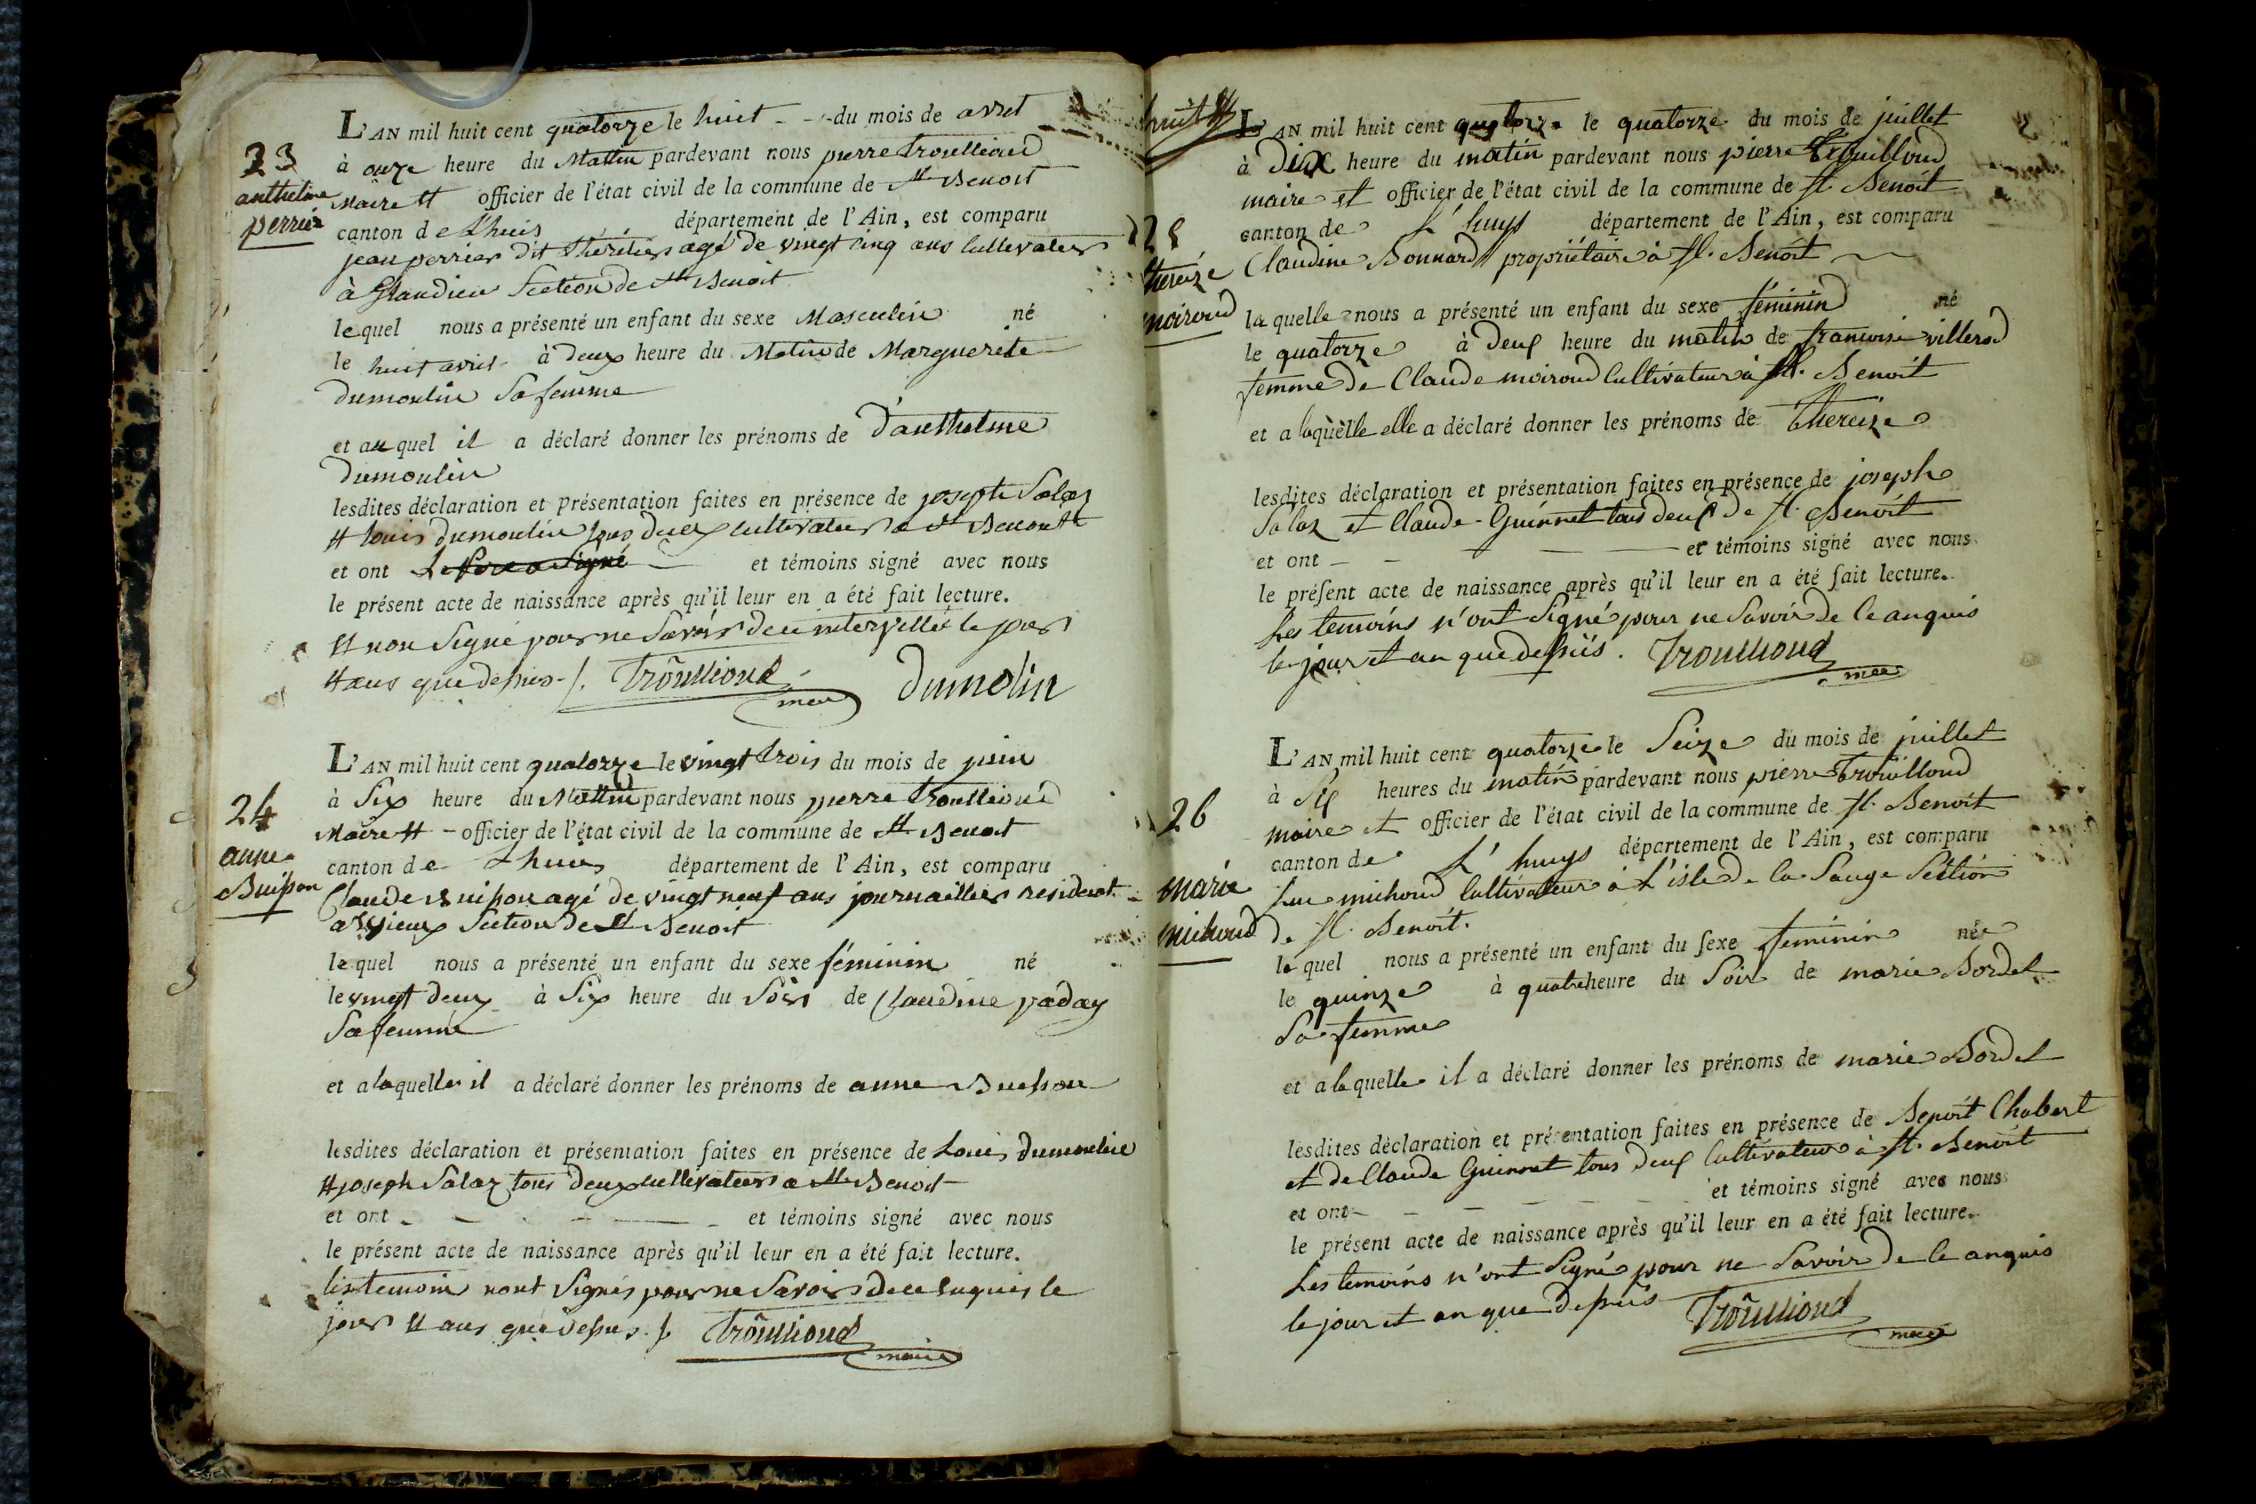 23
anthelme
perrier
L'AN mil huit cent quatorze le huit du mois de avril
à onze heure du Matin pardevant nous pierre Trouilloud
Maire et officier de l'état civil de la commune de St Benoit
canton de Lhuis département de l'Ain, est comparu
jean perrier dit Lhéritier agé de vingt cinq ans cultivateur
à Glandieu Section de St Benoit
lequel nous a présenté un enfant du sexe Masculin né
le huit avril à deux heure du Matin de Marguerite
dumoulin Sa femme
et auquel il a déclaré donner les prénoms de d'anthelme
dumoulin
lesdites déclaration et présentation faites en présence de joseph Salaz
et louis dumoulin tous deux cultivateurs a St Benoit
et ont Le Pere a Signé et témoins signé avec nous
le présent acte de naissance après qu'il leur en a été fait lecture.
et non Signé pour ne Savoir de ce interpellé le jour
et ans que dessus Trouilloud dumolin
maire
24
anne
Buisson
L'AN mil huit cent quatorze le vingt trois du mois de juin
à Six heure du Matin pardevant nous pierre Trouilloud
Maire et officier de l'état civil de la commune de St Benoit
canton de Lhuis département de l'Ain, est comparu
Claude Buisson agé de vingt neuf ans journaillier residant
Section de St Benoit
lequel nous a présenté un enfant du sexe féminin né
le vingt deux à Six heure du Soir de Claudine paday
Sa femme
et a laquelle il a déclaré donner les prénoms de anne Buisson
lesdites déclaration et présentation faites en présence de Louis dumoulin
et joseph Salaz tous deux cultivateurs a St Benoit
et ont et témoins signé avec nous
le présent acte de naissance après qu'il leur en a été fait lecture.
les temoin nont Signés pour ne Savoir de ce enquis le
jour et ans que dessus Trouilloud
maire
huit
25
thereize
moiroud
L'AN mil huit cent quatorze le quatorze du mois de juillet
à Dix heure du matin pardevant nous pierre Trouilloud
maire et officier de l'état civil de la commune de St. Benoit
canton de L'huys département de l'Ain, est comparu
Claudine Bonnard propriétaire à St. Benoit
laquelle nous a présenté un enfant du sexe féminin né
le quatorze à deux heure du matin de francoise villerod
femme de Claude moiroud Cultivateur à St. Benoit
et a laquelle elle a déclaré donner les prénoms de thereize
lesdites déclaration et présentation faites en présence de joseph
Salaz et Claude Guinnet tous deux de St. Benoit
et ont et témoins signé avec nous
le présent acte de naissance après qu'il leur en a été fait lecture.
Les temoins n'ont Signé pour ne Savoir de ce anquis
le jour et an que dessus. Trouilloud
maire
26
marie
michoud
L'AN mil huit cent quatorze le Seize du mois de juillet
à Six heures du matin pardevant nous pierre Trouilloud
maire et officier de l'état civil de la commune de St. Benoit
canton de L'huys département de l'Ain, est comparu
Luc michoud Cultivateur à L'isle de la Sauge Section
de St. Benoit.
lequel nous a présenté un enfant du sexe feminin née
le quinze à quatre heure du Soir de marie Bordel
Sa femme
et a laquelle il a déclaré donner les prénoms de marie Bordel
lesdites déclaration et présentation faites en présence de Benoit Chabert
et de Claude Guinnet tous deux Cultivateur à St. Benoit
et ont et témoins signé avec nous
le présent acte de naissance après qu'il leur en a été fait lecture.
Les temoins n'ont Signé pour ne Savoir de ce anquis
le jour et an que dessus Trouilloud
maire